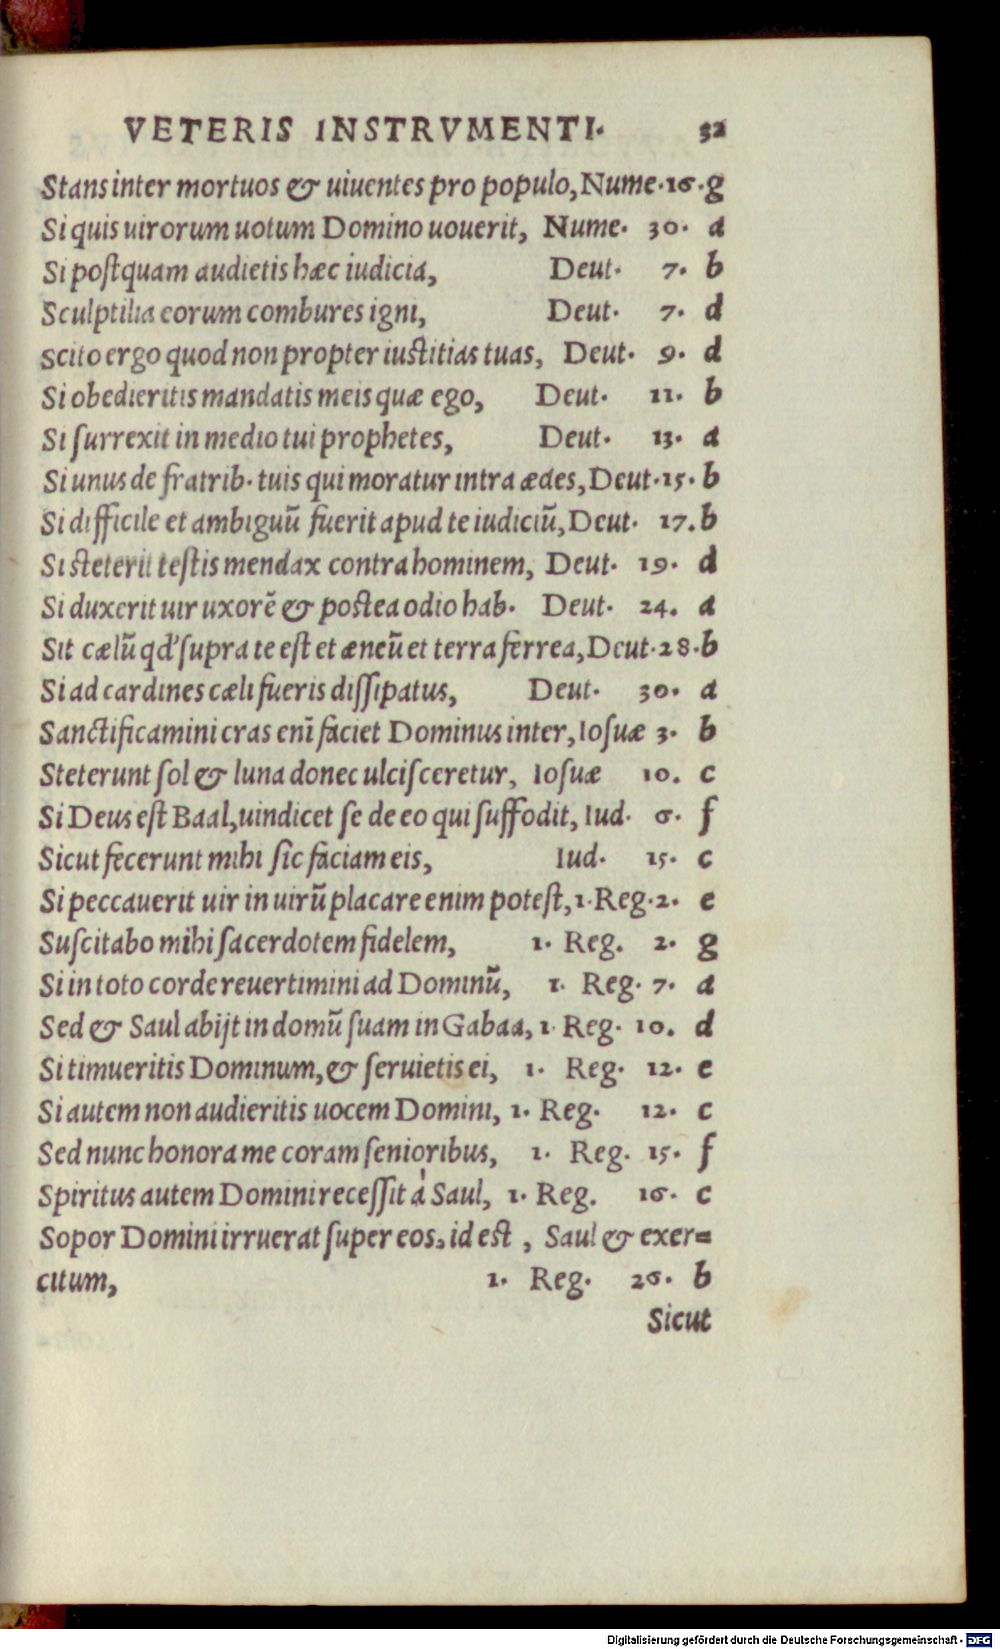 VETERIS INSTRVMENTI. 32
Stans inter mortuos & uiuentes pro populo, Nume. 16. g
Si quis uirorum uotum Domino uouerit, Nume. 30. a
Si poſtquam audietis hæc iudicia, Deut. 7. b
Sculptilia eorum combures igni, Deut. 7. d
Scito ergo quod non propter iuſtitias tuas, Deut. 9. d
Si obedieritis mandatis meis quæ ego, Deut. 11. b
Si ſurrexit in medio tui prophetes, Deut. 13. a
Si unus de fratrib. tuis qui moratur intra ædes, Deut. 15. b
Si difficile et ambiguũ fuerit apud te iudiciũ, Deut. 17. b
Si ſteterit teſtis mendax contra hominem, Deut. 19. d
Si duxerit uir uxorẽ & poſtea odio hab. Deut. 24. a
Sit cælũ qd' ſupra te eſt et æneũ et terra ferrea, Deut. 28. b
Si ad cardines cæli fueris diſſipatus, Deut. 30. a
Sanctificamini cras enĩ faciet Dominus inter, Ioſuæ 3. b
Steterunt ſol & luna donec ulciſceretur, Ioſuæ 10. c
Si Deus eſt Baal, uindicet ſe de eo qui ſuffodit, Iud. 6. f
Sicut fecerunt mihi ſic faciam eis, Iud. 15. c
Si peccauerit uir in uirũ placare enim poteſt, 1. Reg. 2. e
Suſcitabo mihi ſacerdotem fidelem, 1. Reg. 2. g
Si in toto corde reuertimini ad Dominũ, 1. Reg. 7. a
Sed & Saul abijt in domũ ſuam in Gabaa, 1. Reg. 10. d
Si timueritis Dominum, & ſeruietis ei, 1. Reg. 12. e
Si autem non audieritis uocem Domini, 1. Reg. 12. c
Sed nunc honora me coram ſenioribus, 1. Reg. 15. f
Spiritus autem Domini receſſit à Saul, 1. Reg. 16. c
Sopor Domini irruerat ſuper eos, id eſt, Saul & exer=
citum, 1. Reg. 26. b
Sicut
Digitalisierung gefördert durch die Deutsche Forschungsgemeinschaft - DFG